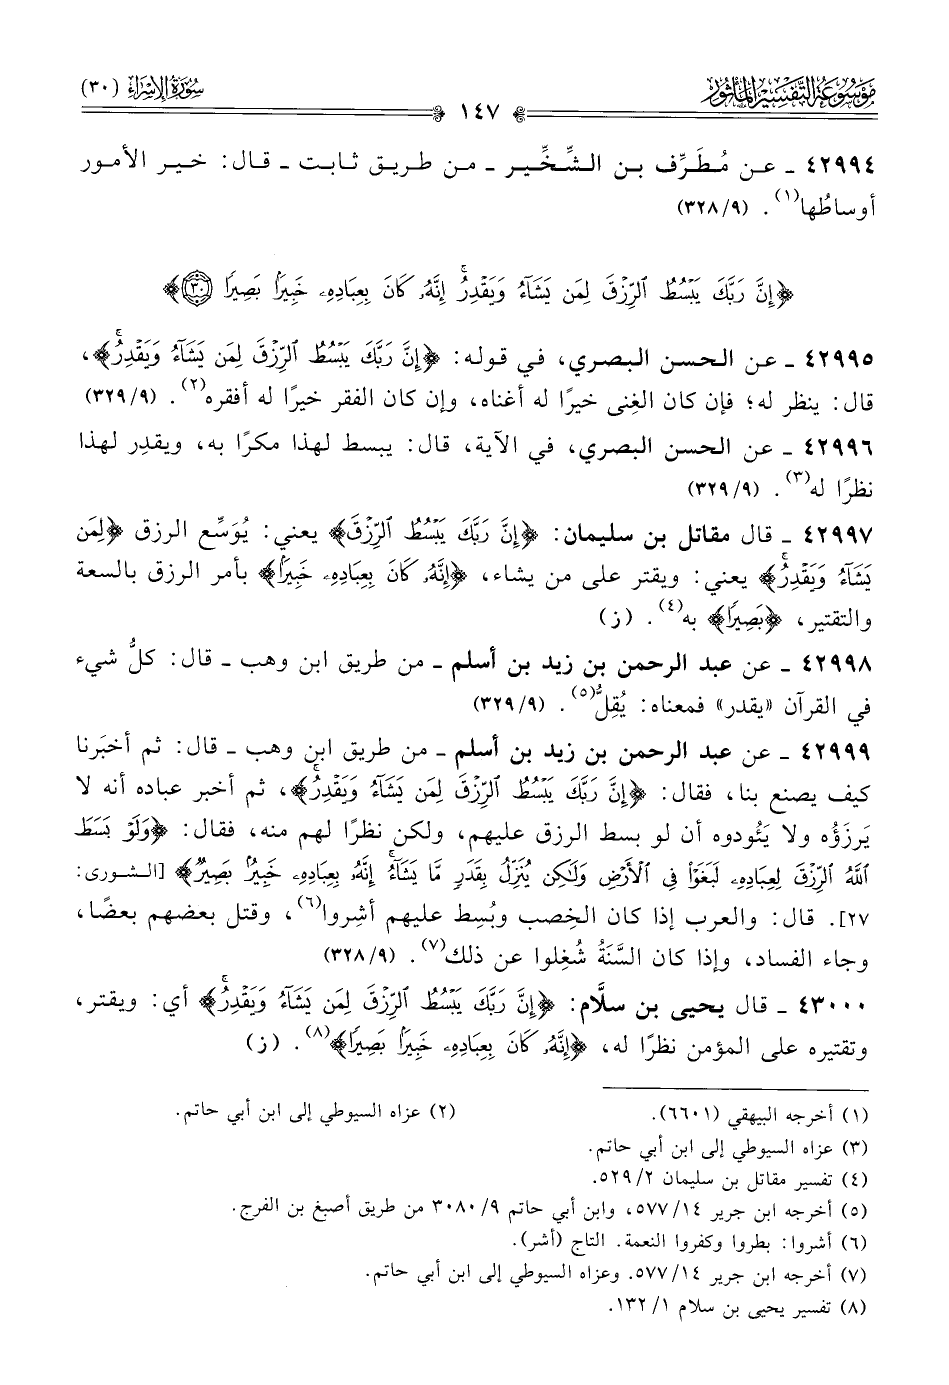 مَوْسُوعَة التَّفْسِير المَأْثُور
سُورَةُ الإِسْرَاء (٣٠)
١٤٧
٤٢٩٩٤ ـ عن مُطَرِّف بن الشِّخِّير ـ من طريق ثابت ـ قال: خير الأمور
أوساطُها(١). (٣٢٨/٩)
﴿إِنَّ رَبَّكَ يَبْسُطُ ٱلرِّزْقَ لِمَن يَشَآءُ وَيَقْدِرُۚ إِنَّهُۥ كَانَ بِعِبَادِهِۦ خَبِيرًۢا بَصِيرًا ٣٠﴾
٤٢٩٩٥ ـ عن الحسن البصري، في قوله: ﴿إِنَّ رَبَّكَ يَبْسُطُ ٱلرِّزْقَ لِمَن يَشَآءُ وَيَقْدِرُۚ﴾،
قال: ينظر له؛ فإن كان الغِنى خيرًا له أغناه، وإن كان الفقر خيرًا له أفقره(٢). (٣٢٩/٩)
٤٢٩٩٦ ـ عن الحسن البصري، في الآية، قال: يبسط لهذا مكرًا به، ويقدِر لهذا
نظرًا له(٣). (٣٢٩/٩)
٤٢٩٩٧ ـ قال مقاتل بن سليمان: ﴿إِنَّ رَبَّكَ يَبْسُطُ ٱلرِّزْقَ﴾ يعني: يُوَسِّع الرزق ﴿لِمَن
يَشَآءُ وَيَقْدِرُۚ﴾ يعني: ويقتر على من يشاء، ﴿إِنَّهُۥ كَانَ بِعِبَادِهِۦ خَبِيرًۢا﴾ بأمر الرزق بالسعة
والتقتير، ﴿بَصِيرًا﴾ به(٤). (ز)
٤٢٩٩٨ ـ عن عبد الرحمن بن زيد بن أسلم ـ من طريق ابن وهب ـ قال: كلُّ شيء
في القرآن «يقدر» فمعناه: يُقِلُّ(٥). (٣٢٩/٩)
٤٢٩٩٩ ـ عن عبد الرحمن بن زيد بن أسلم ـ من طريق ابن وهب ـ قال: ثم أخبَرنا
كيف يصنع بنا، فقال: ﴿إِنَّ رَبَّكَ يَبْسُطُ ٱلرِّزْقَ لِمَن يَشَآءُ وَيَقْدِرُۚ﴾، ثم أخبر عباده أنه لا
يَرزَؤُه ولا يَئُودوه أن لو بسط الرزق عليهم، ولكن نظرًا لهم منه، فقال: ﴿وَلَوْ بَسَطَ
ٱللَّهُ ٱلرِّزْقَ لِعِبَادِهِۦ لَبَغَوْا۟ فِى ٱلْأَرْضِ وَلَٰكِن يُنَزِّلُ بِقَدَرٍ مَّا يَشَآءُۚ إِنَّهُۥ بِعِبَادِهِۦ خَبِيرٌۢ بَصِيرٌ﴾ [الشورى:
٢٧]. قال: والعرب إذا كان الخِصب وبُسِط عليهم أشِروا(٦)، وقتل بعضهم بعضًا،
وجاء الفساد، وإذا كان السَّنَةُ شُغِلوا عن ذلك(٧). (٣٢٨/٩)
٤٣٠٠٠ ـ قال يحيى بن سلَّام: ﴿إِنَّ رَبَّكَ يَبْسُطُ ٱلرِّزْقَ لِمَن يَشَآءُ وَيَقْدِرُۚ﴾ أي: ويقتر،
وتقتيره على المؤمن نظرًا له، ﴿إِنَّهُۥ كَانَ بِعِبَادِهِۦ خَبِيرًۢا بَصِيرًا﴾(٨). (ز)
(١) أخرجه البيهقي (٦٦٠١). (٢) عزاه السيوطي إلى ابن أبي حاتم.
(٣) عزاه السيوطي إلى ابن أبي حاتم.
(٤) تفسير مقاتل بن سليمان ٢/ ٥٢٩.
(٥) أخرجه ابن جرير ١٤/ ٥٧٧، وابن أبي حاتم ٩/ ٣٠٨٠ من طريق أصبغ بن الفرج.
(٦) أشروا: بطروا وكفروا النعمة. التاج (أشر).
(٧) أخرجه ابن جرير ١٤/ ٥٧٧. وعزاه السيوطي إلى ابن أبي حاتم.
(٨) تفسير يحيى بن سلام ١/ ١٣٢.